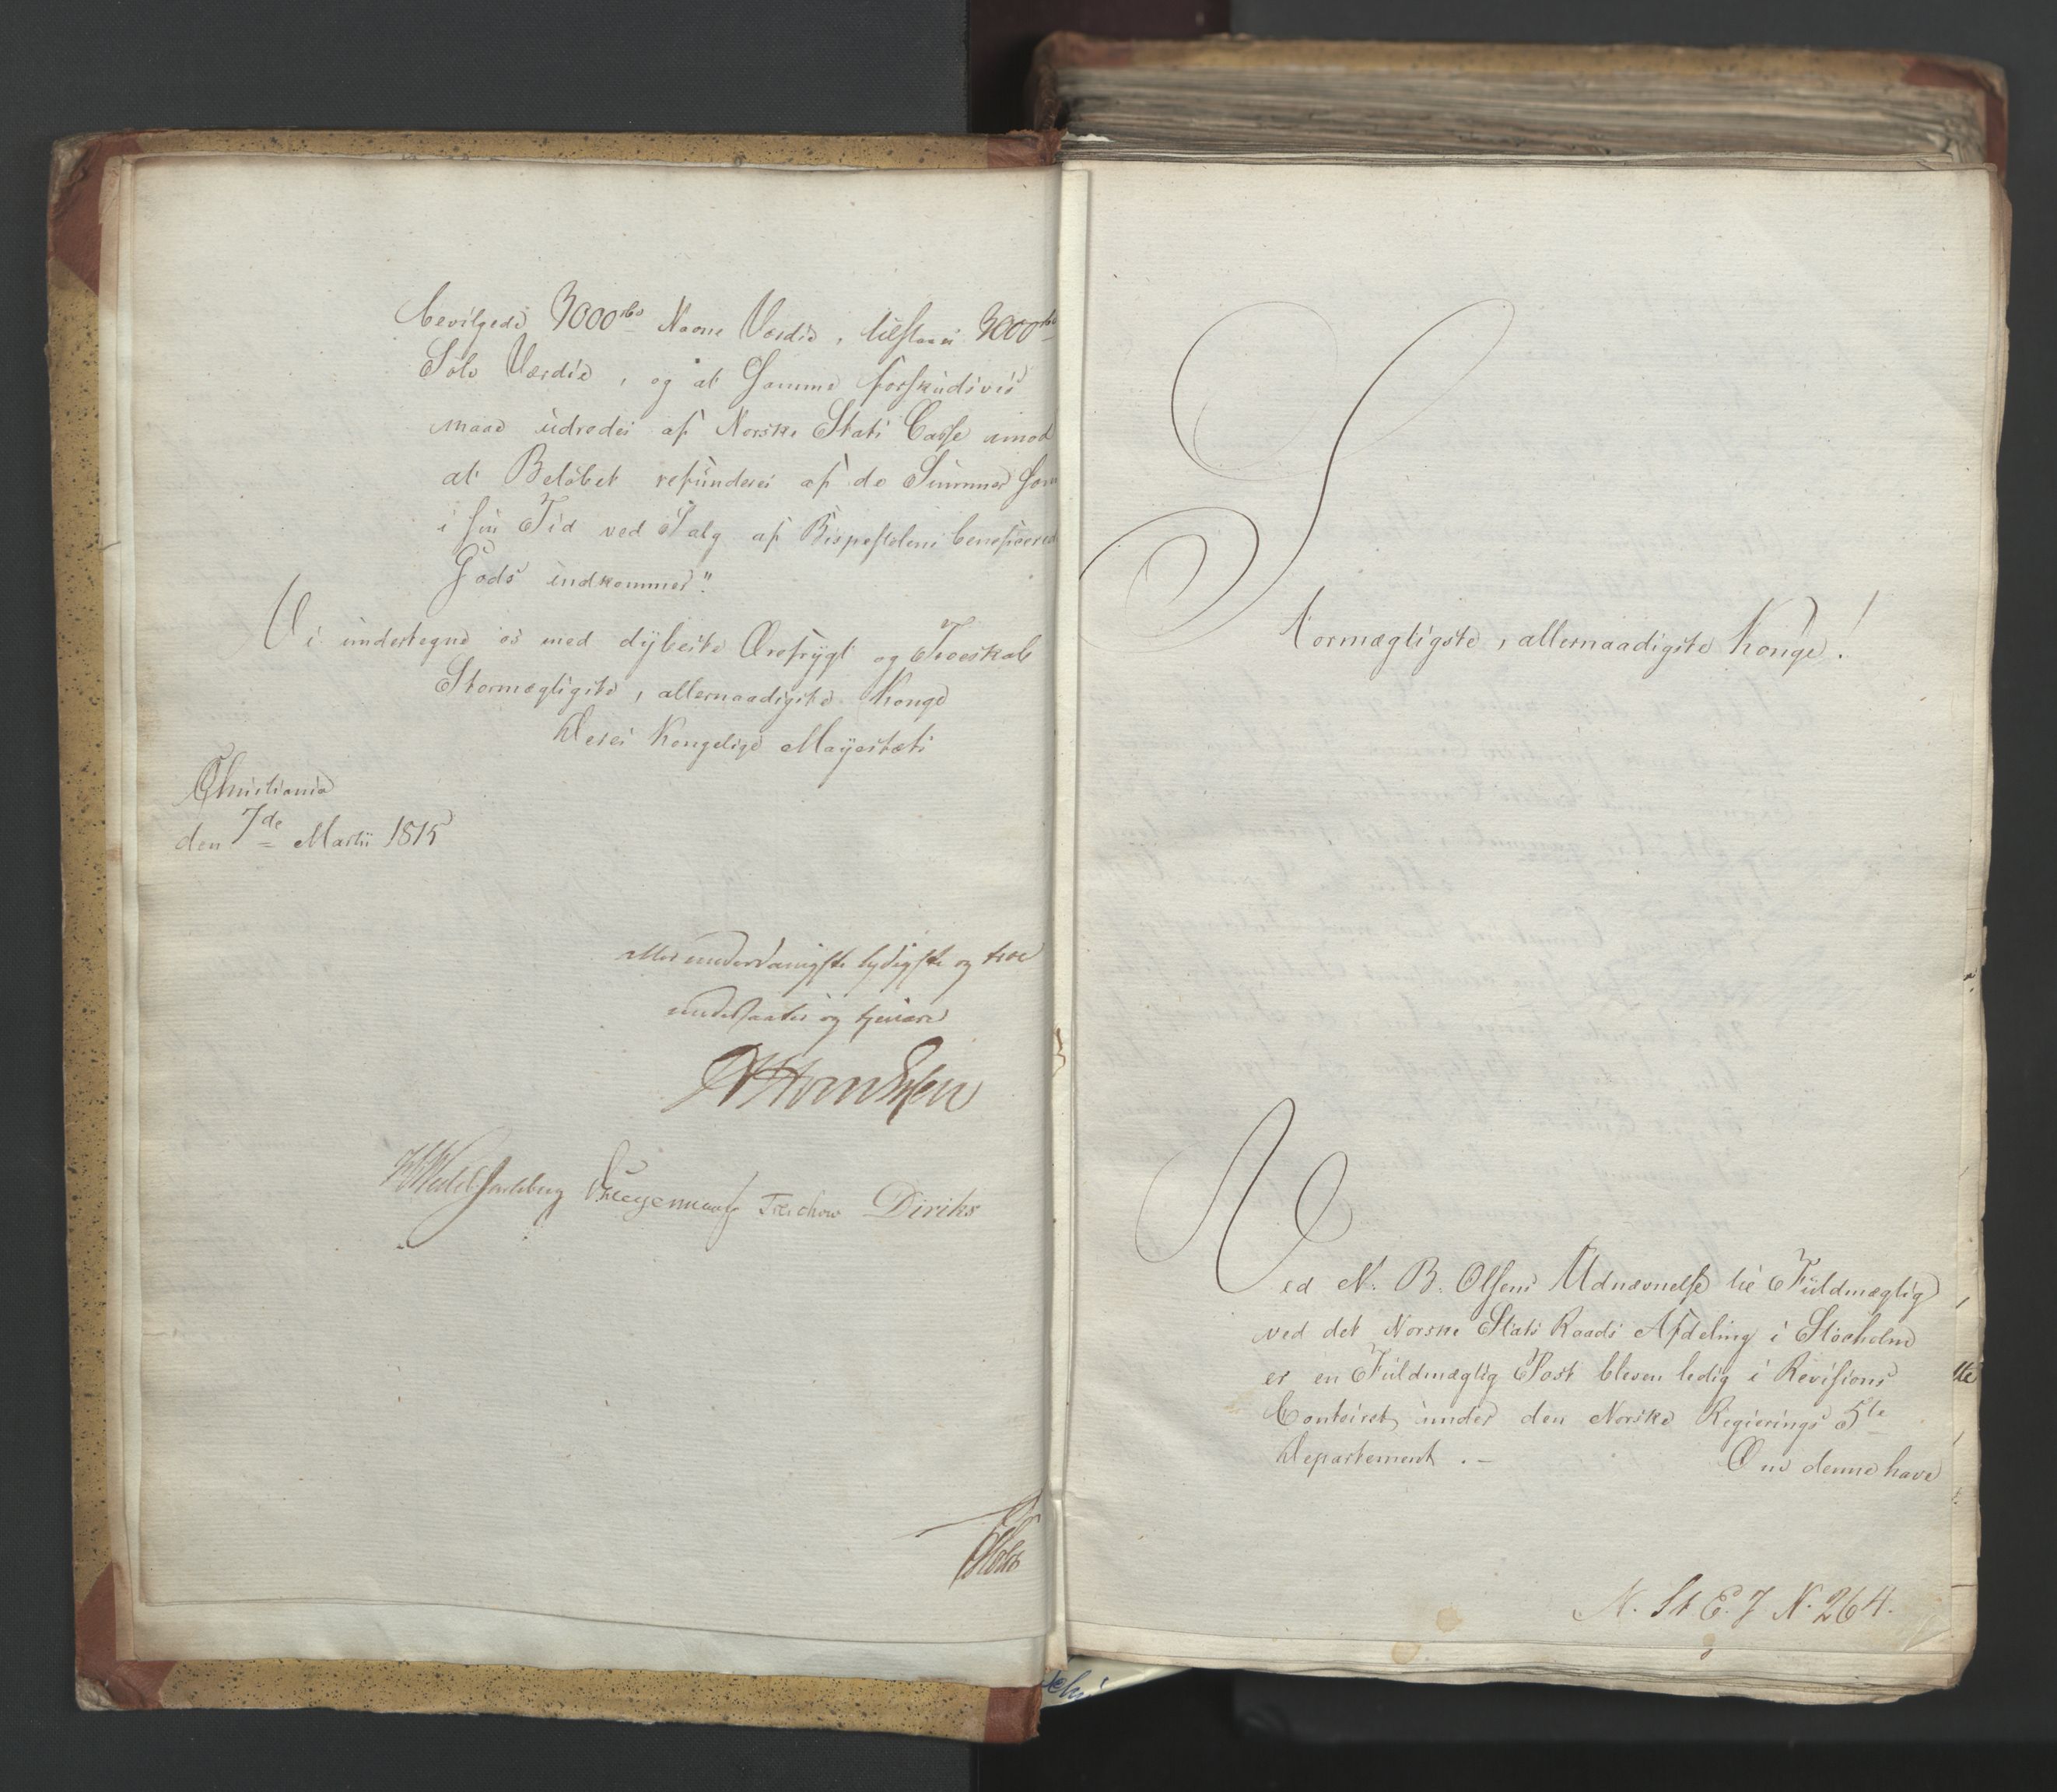 bevilgede 3000 rbd Navne Værdie, tilstaaes 3000 rbd
Sølv Værdie, og at Samme forskudsvis
maae udredes af Norske Stats Casse imod
at Beløbet refunderes af de Summer som
i sin Tid ved Salg af Bispestolens beneficerede
Gods indkommer".
Vi undertegne os med dybeste Ærefrygt og Troeskab
Stormægtigste, allernaadigste Konge
Deres Kongelige Mayestæts
Christiania
den 7de Martii 1815
allerunderdanigste lydigste og troe
undersaatter og tjenere
M Aall
HWedel Jarlsberg Krieg Treschow Diriks
Holst
Stormægtigste, allernaadigste Konge!
Ved N. B. Olsens Udnævnelse til Fuldmægtig
ved det Norske Stats Raads Afdeling i Stockholm
er en Fuldmægtig Post bleven ledig i Revisions
Contoiret under den Norske Regierings 5te
Departement. – Om denne have
N. St. E. J N. 264.